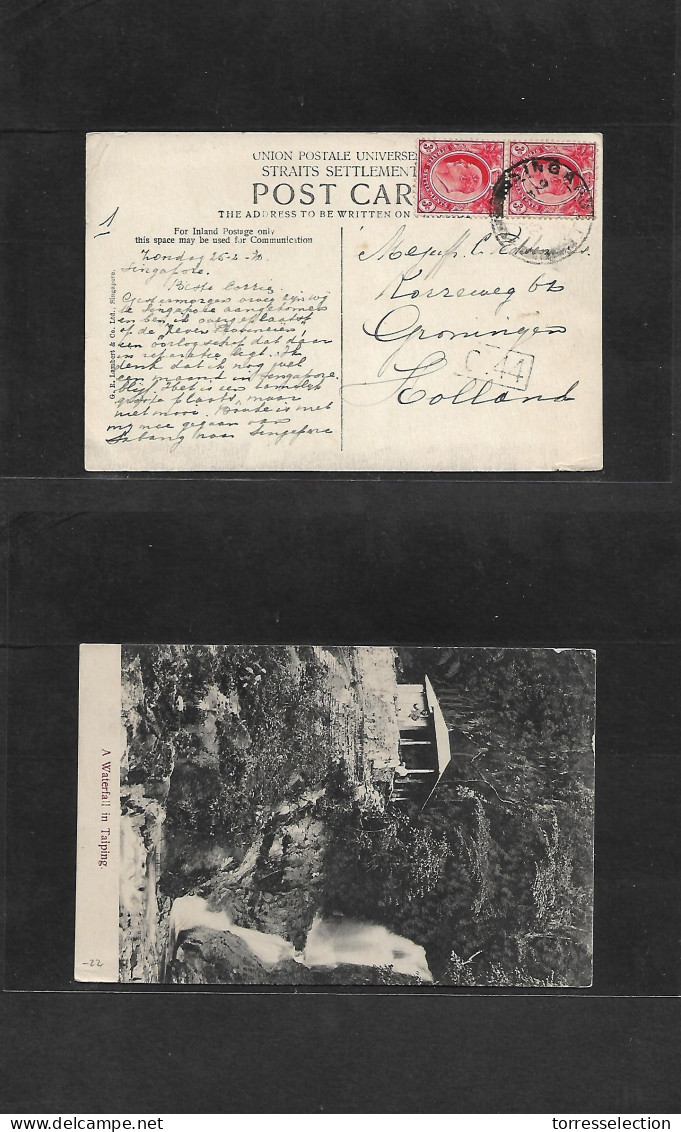 UNION POSTALE UNIVERSE
STRAITS SETTLEMENT
POST CAR
THE ADDRESS TO BE WRITTEN ON
For Inland Postage only
this space may be used for Communication
G. R. Lambert & Co. Ltd., Singapore.
1
SINGAP
Zondag 26-2-
Singapore.
Beste Corrie
Singapore aangekomen
en ben ik overgeplaatst
op de Zeven Provinciën,
een oorlogschip dat daar
in reparatie ligt. Ik
denk dat ik nog wel
een maand in Singapore
blijf. Het is een
groote plaats, maar
niet mooi. is met
mij mee gegaan van
Sabang naar Singapore
Mejuff. C.
Groningen
Holland
C.44
A Waterfall in Taiping.
-22
delcampe.net
torresselection